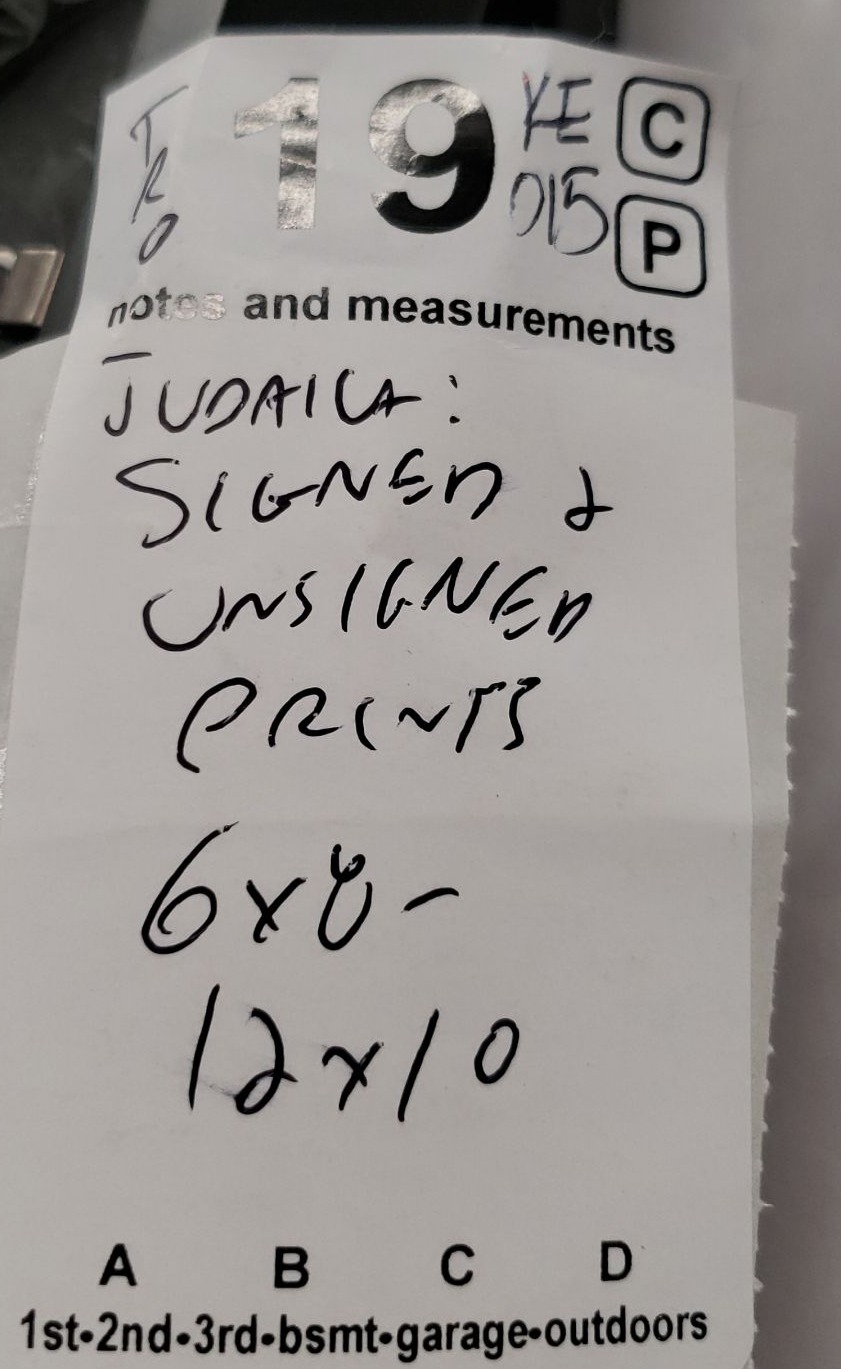 TRO
19
YE
015
C
P
notes and measurements
JUDAICA:
SIGNED &
UNSIGNED
PRINTS
6x8-
12x10
A B C D
1st•2nd•3rd•bsmt•garage•outdoors